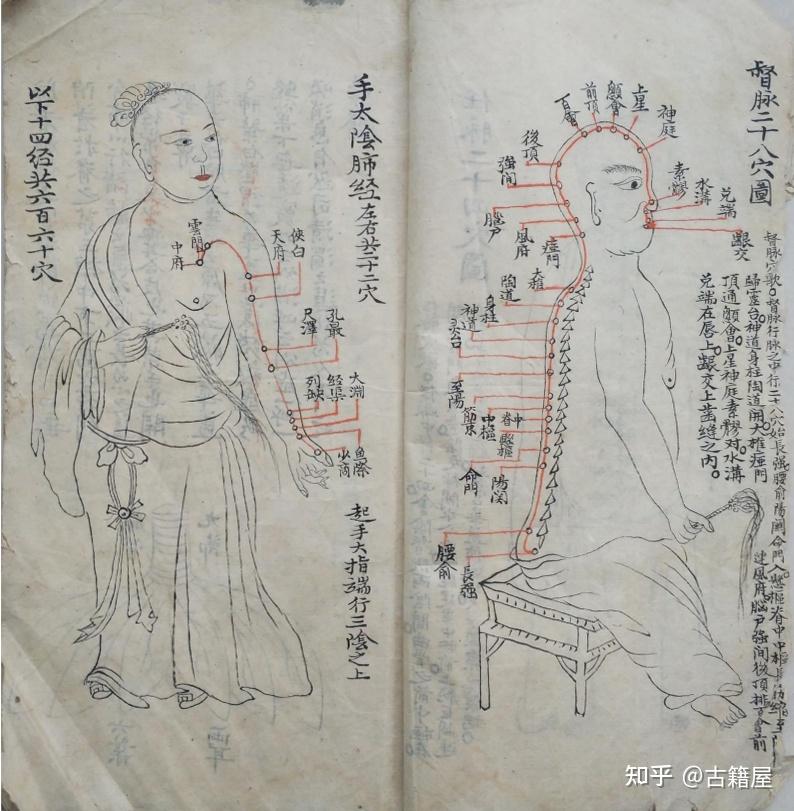 督脉二十八穴圖
神庭
上星
顖會
前頂
百會
後頂
強間
腦戶
風府
瘂門
大椎
陶道
身柱
神道
灵台
至陽
筋束
中樞
脊中
懸樞
命門
陽関
腰俞
長强
素髎
水溝
兑端
齦交
督脉穴歌。督脉行脉之中行二十八穴始長强腰俞陽関命門入懸樞脊中中樞
歸灵台神道身柱陶道開大椎瘂門
風府腦戶強间後頂排百會前
頂通顖會上星神庭素髎对水溝
兑端在唇上齦交上齿缝之内。
手太陰肺経左右共二十二穴
雲門
中府
天府
俠白
尺澤
孔最
列缺
経渠
大淵
魚際
少商
起手大指端行三陰之上
以下十四経共六百六十穴
知乎 @古籍屋